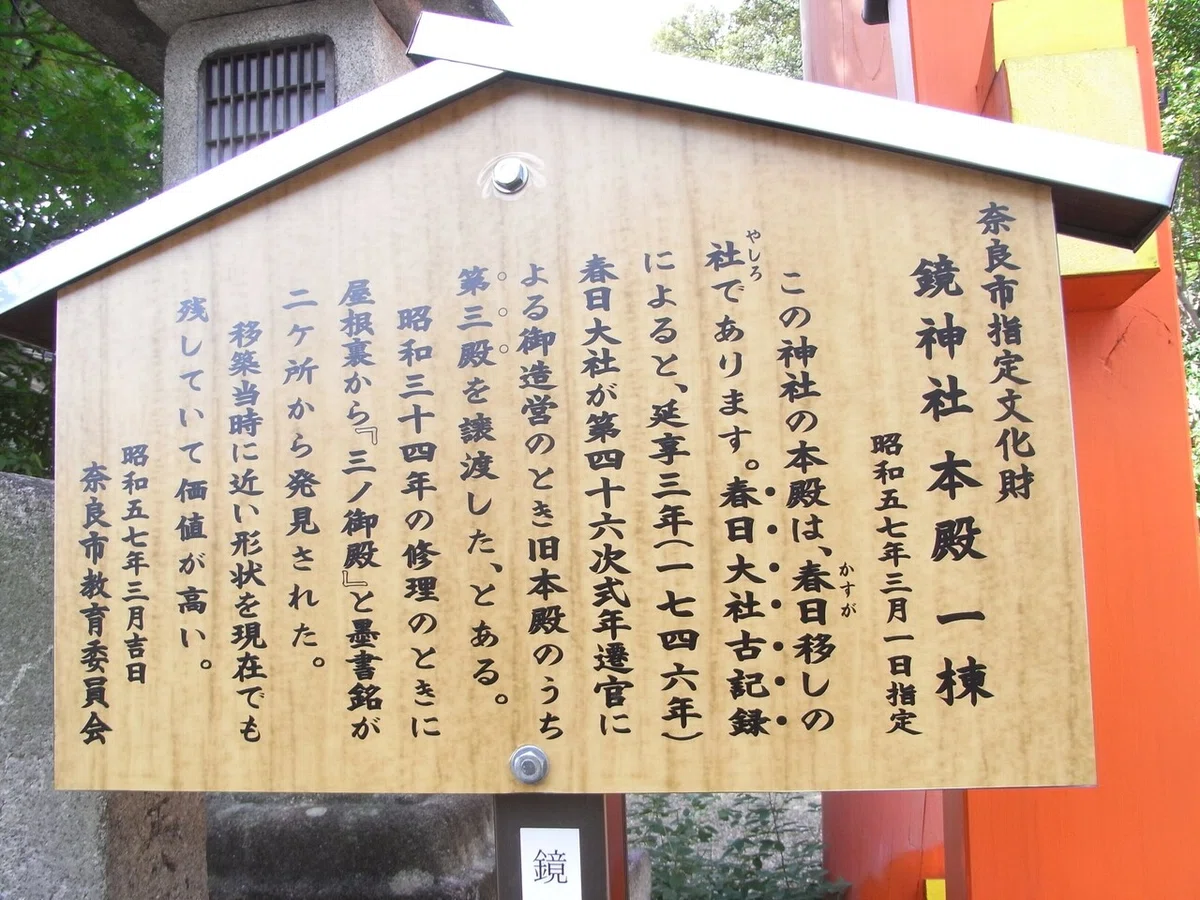 奈良市指定文化財
鏡神社本殿 一棟
昭和五七年三月一日指定
この神社の本殿は、春日移しの
かすが
社であります。春日大社古記録
やしろ
によると、延享三年(一七四六年)
春日大社が第四十六次式年遷官に
よる御造営のとき旧本殿のうち
第三殿を譲渡した、とある。
昭和三十四年の修理のときに
屋根裏から『三ノ御殿』と墨書銘が
二ケ所から発見された。
移築当時に近い形状を現在でも
残していて価値が高い。
昭和五七年三月吉日
奈良市教育委員会
鏡